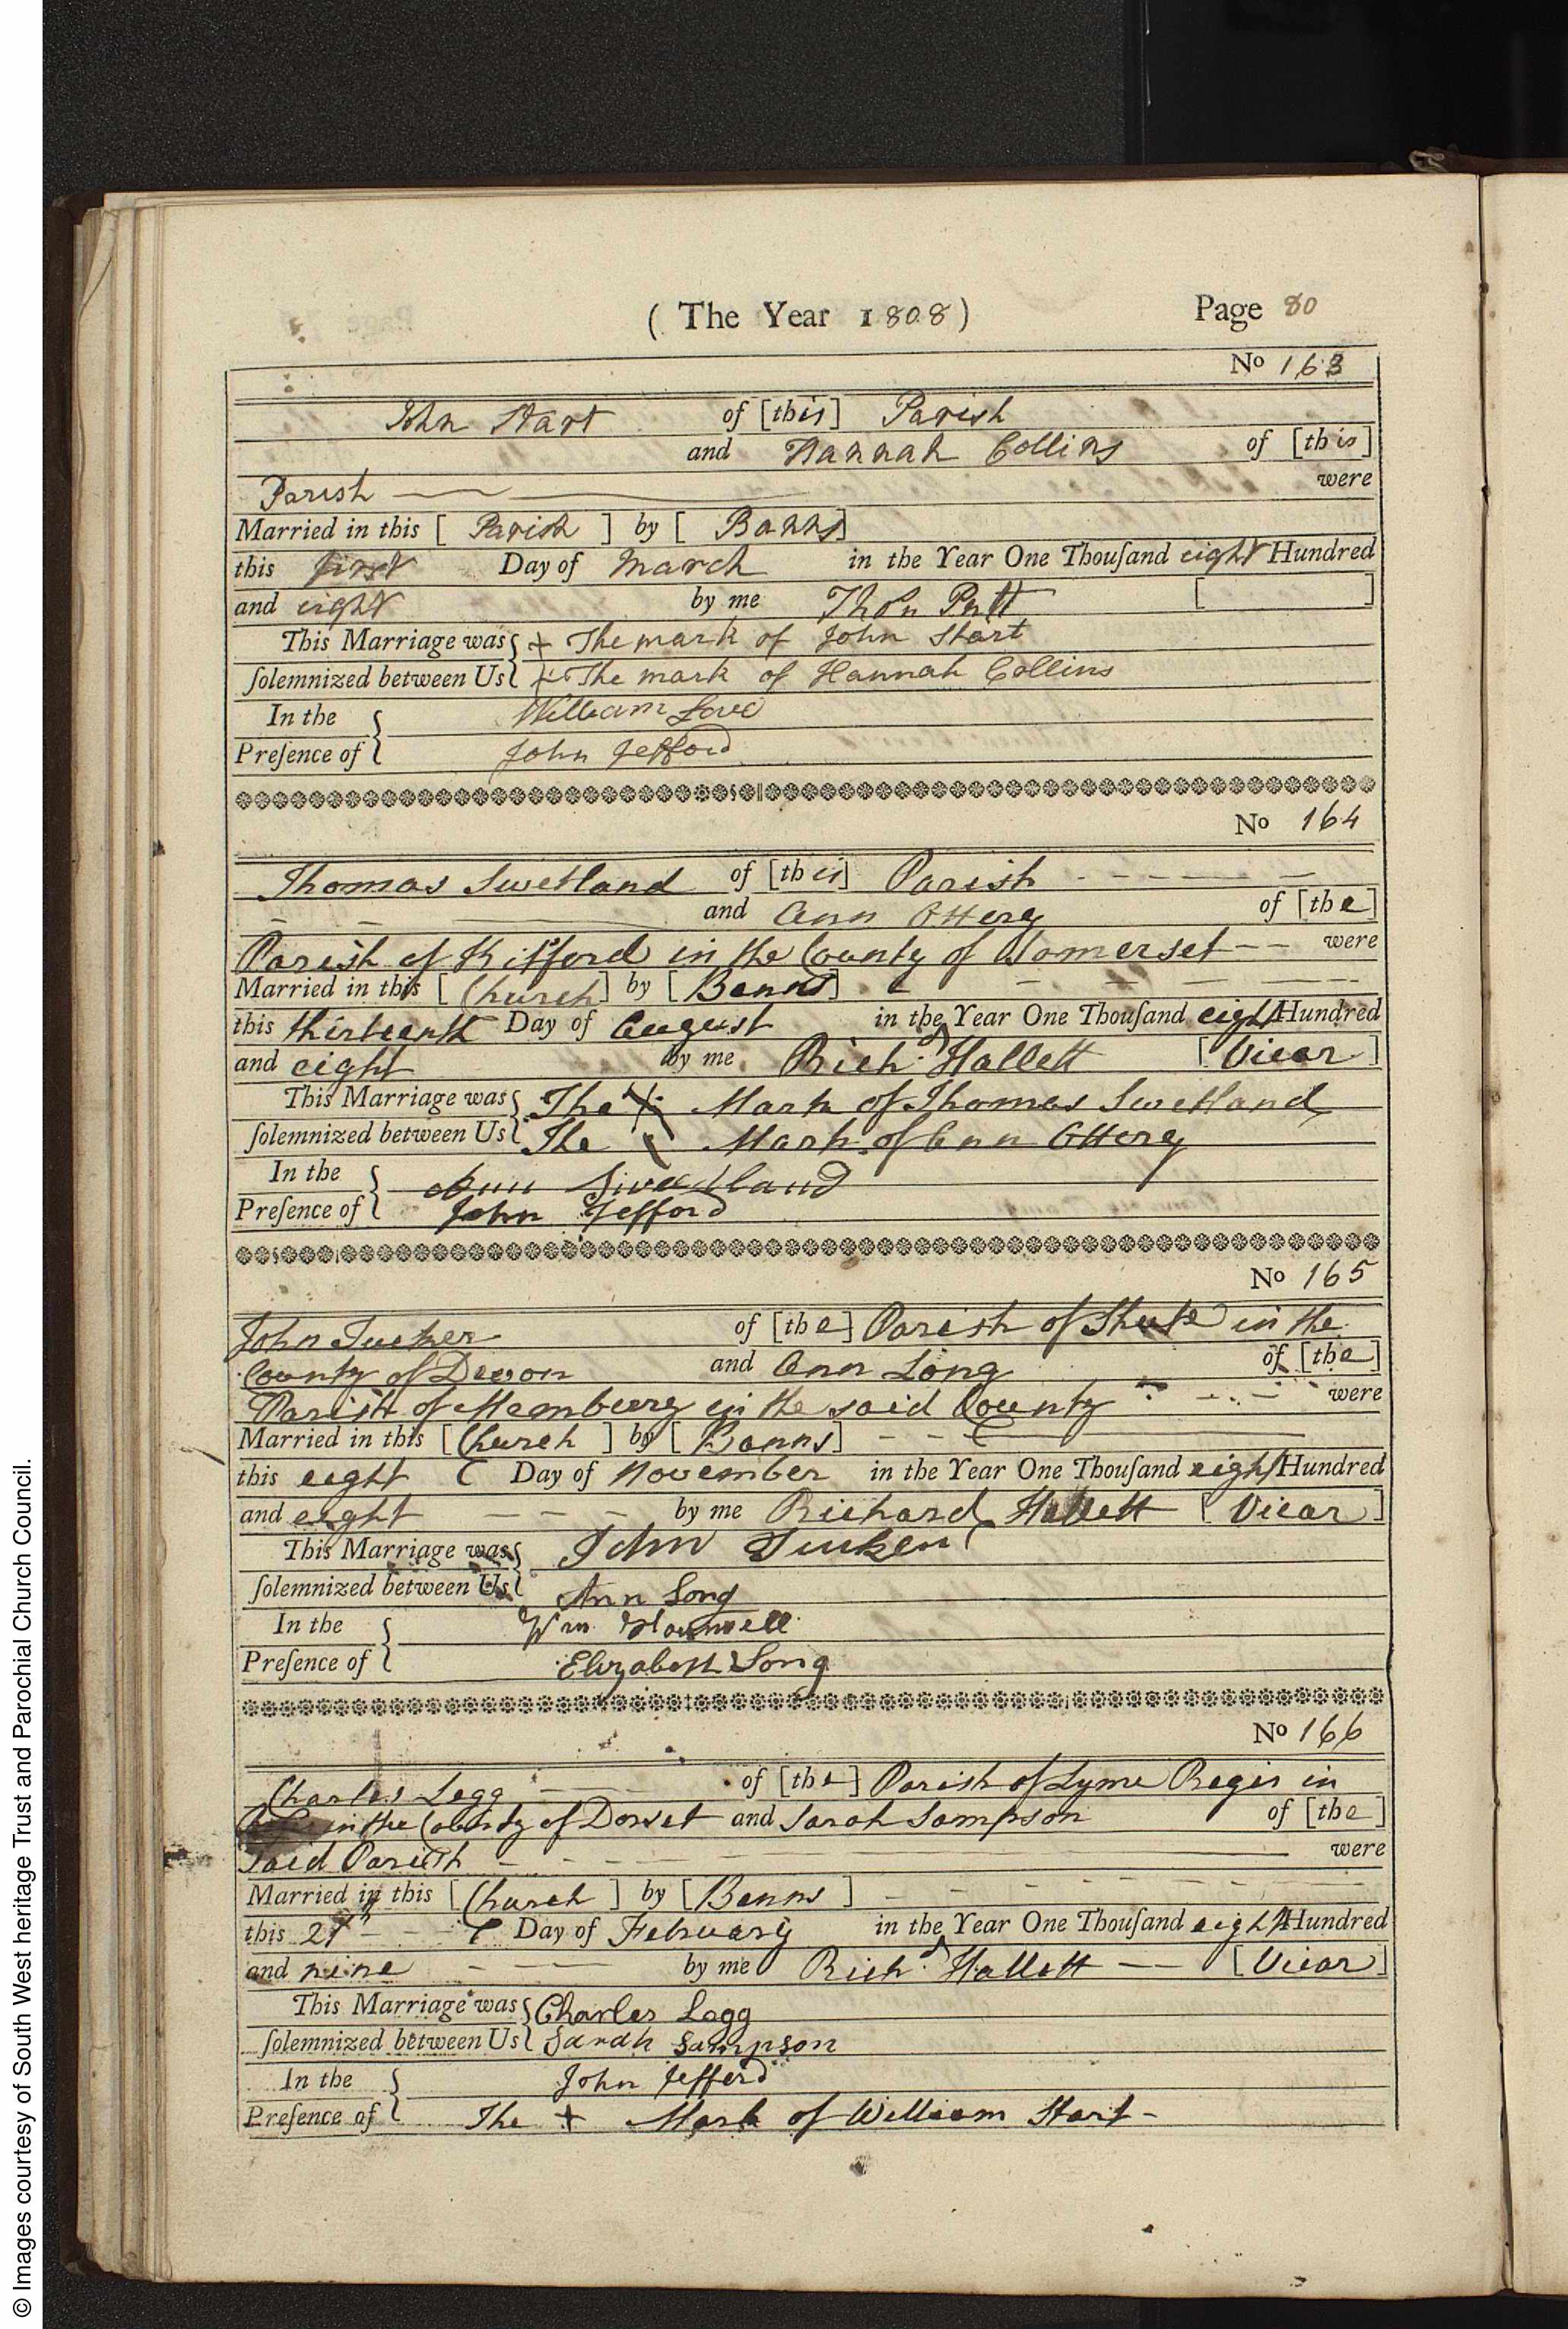 (The Year 1808) Page 80
No 163
John Start of [this] Parish
and Hannah Collins of [this]
Parish were
Married in this [Parish] by [Banns]
this first Day of March in the Year One Thouſand eight Hundred
and eight by me Thos Putt [ ]
This Marriage was { + The mark of John Start
ſolemnized between Us { + The mark of Hannah Collins
In the { William Love
Preſence of { John Jefford
No 164
Thomas Swetland of [this] Parish
and Ann Ottery of [the]
Parish of in the County of Somerset were
Married in this [Church] by [Banns]
this thirteenth Day of August in the Year One Thouſand eight Hundred
and eight by me Richd Hallett [Vicar]
This Marriage was { The X Mark of Thomas Swetland
ſolemnized between Us { The x Mark of Ann Ottery
In the { Ann Sweetland
Preſence of { John Jefford
No 165
John Tucker of [the] Parish of Shute in the
County of Devon and Ann Long of [the]
Parish of Membury in the said County were
Married in this [Church] by [Banns]
this eight Day of November in the Year One Thouſand eight Hundred
and eight by me Richard Hallett [Vicar]
This Marriage was { John Tucker
ſolemnized between Us { Ann Long
In the { Wm
Preſence of { Elizabeth Long
No 166
Charles Legg of [the] Parish of Lyme Regis in
in the County of Dorset and Sarah Sampson of [the]
said Parish were
Married in this [Church] by [Banns]
this 27th Day of February in the Year One Thouſand eight Hundred
and nine by me Richd Hallett [Vicar]
This Marriage was { Charles Legg
ſolemnized between Us { Sarah Sampson
In the { John Jefferd
Preſence of { The + Mark of William Start
© Images courtesy of South West heritage Trust and Parochial Church Council.